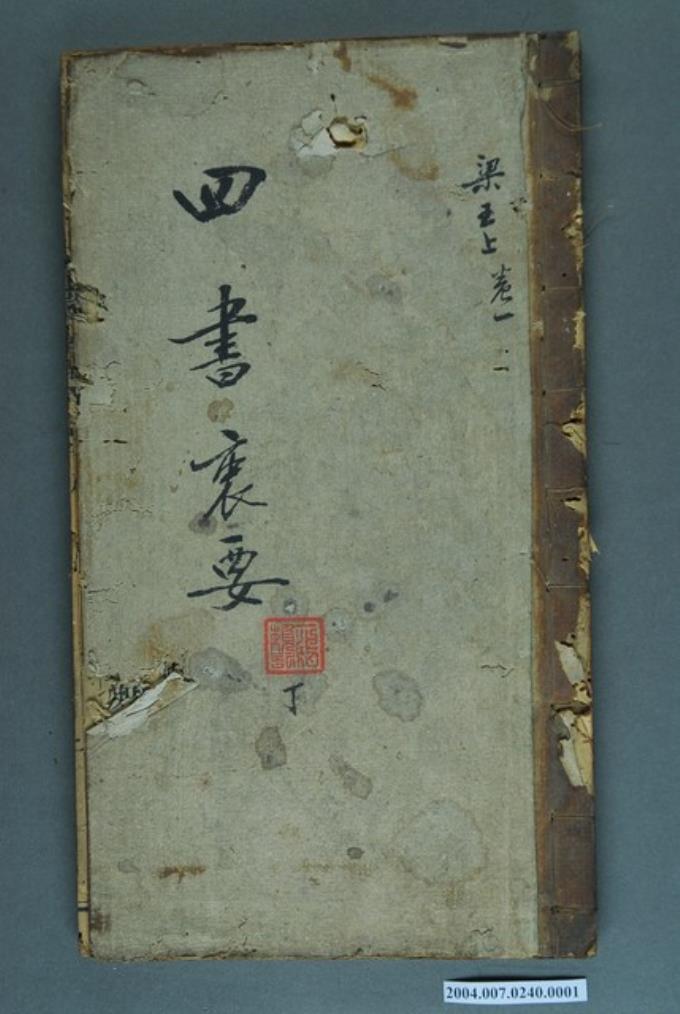 梁王上 卷一
四書裏要
丁
2004.007.0240.0001